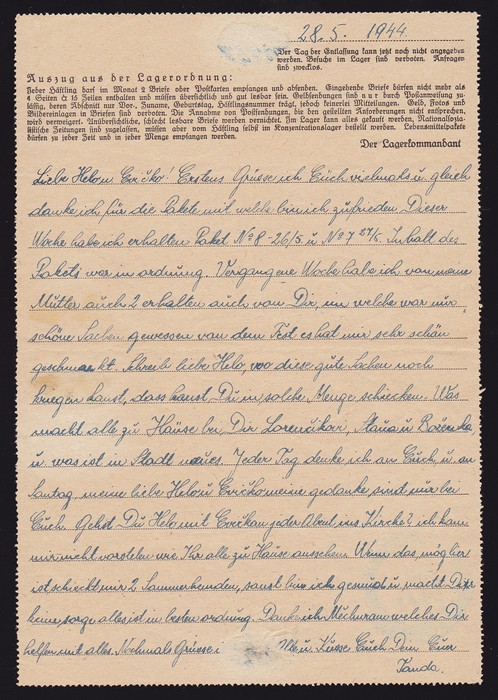 28.5. 1944
Der Tag der Entlassung kann jetzt noch nicht angegeben
werden. Besuche im Lager sind verboten. Anfragen
sind zwecklos.
Auszug aus der Lagerordnung:
Jeder Häftling darf im Monat 2 Briefe oder Postkarten empfangen und absenden. Eingehende Briefe dürfen nicht mehr als
4 Seiten à 15 Zeilen enthalten und müssen übersichtlich und gut lesbar sein. Geldsendungen sind nur durch Postanweisung zu-
lässig, deren Abschnitt nur Vor-, Zuname, Geburtstag, Häftlingsnummer trägt, jedoch keinerlei Mitteilungen. Geld, Fotos und
Bildereinlagen in Briefen sind verboten. Die Annahme von Postsendungen, die den gestellten Anforderungen nicht entsprechen,
wird verweigert. Unübersichtliche, schlecht lesbare Briefe werden vernichtet. Im Lager kann alles gekauft werden. Nationalsozia-
listische Zeitungen sind zugelassen, müssen aber vom Häftling selbst im Konzentrationslager bestellt werden. Lebensmittelpakete
dürfen zu jeder Zeit und in jeder Menge empfangen werden.
Der Lagerkommandant
Liebe Helo u Evičko! Erstens Grüsse ich Euch vielmals u gleich
danke ich für die Pakete mit welche bin ich zufrieden Dieser
Woche habe ich erhalten Paket No 8-26/5 u No 7 27/5. Inhalt des
Pakets war in ordnung. Vergangene Woche habe ich von meine
Mutter auch 2 erhalten auch von Dir, in welche war mir
schöne Sachen gewessen von dem Fest es hat mir sehr schön
geschmeckt. Schreib liebe Helo, wo diese gute Sachen noch
kriegen kanst, dass kanst Du in solche Menge schicken. Was
macht alle zu Hause bei Dir Lorenčíkovi, Staňa u Boženka,
u was ist in Stadt neues. Jeder Tag denke ich an Euch u an
Santag, meine liebe Helo u Evičko meine gedanke sind nur bei
Euch. Gehst Du Helo mit Evičkou jeder Abent ins Kirche? ich kann
mir nicht vorstelen wie Ihr alle zu Hause aussehen. Wenn das möglich
ist schickt mir 2 Sammerhemden, sanst bin ich gesund u macht Dir
keine sorge alles ist in besten ordnung. Danke ich welches Dir
helfen mit alles. Nochmals Grüsse u Küsse Euch Dein Euer
Janda.